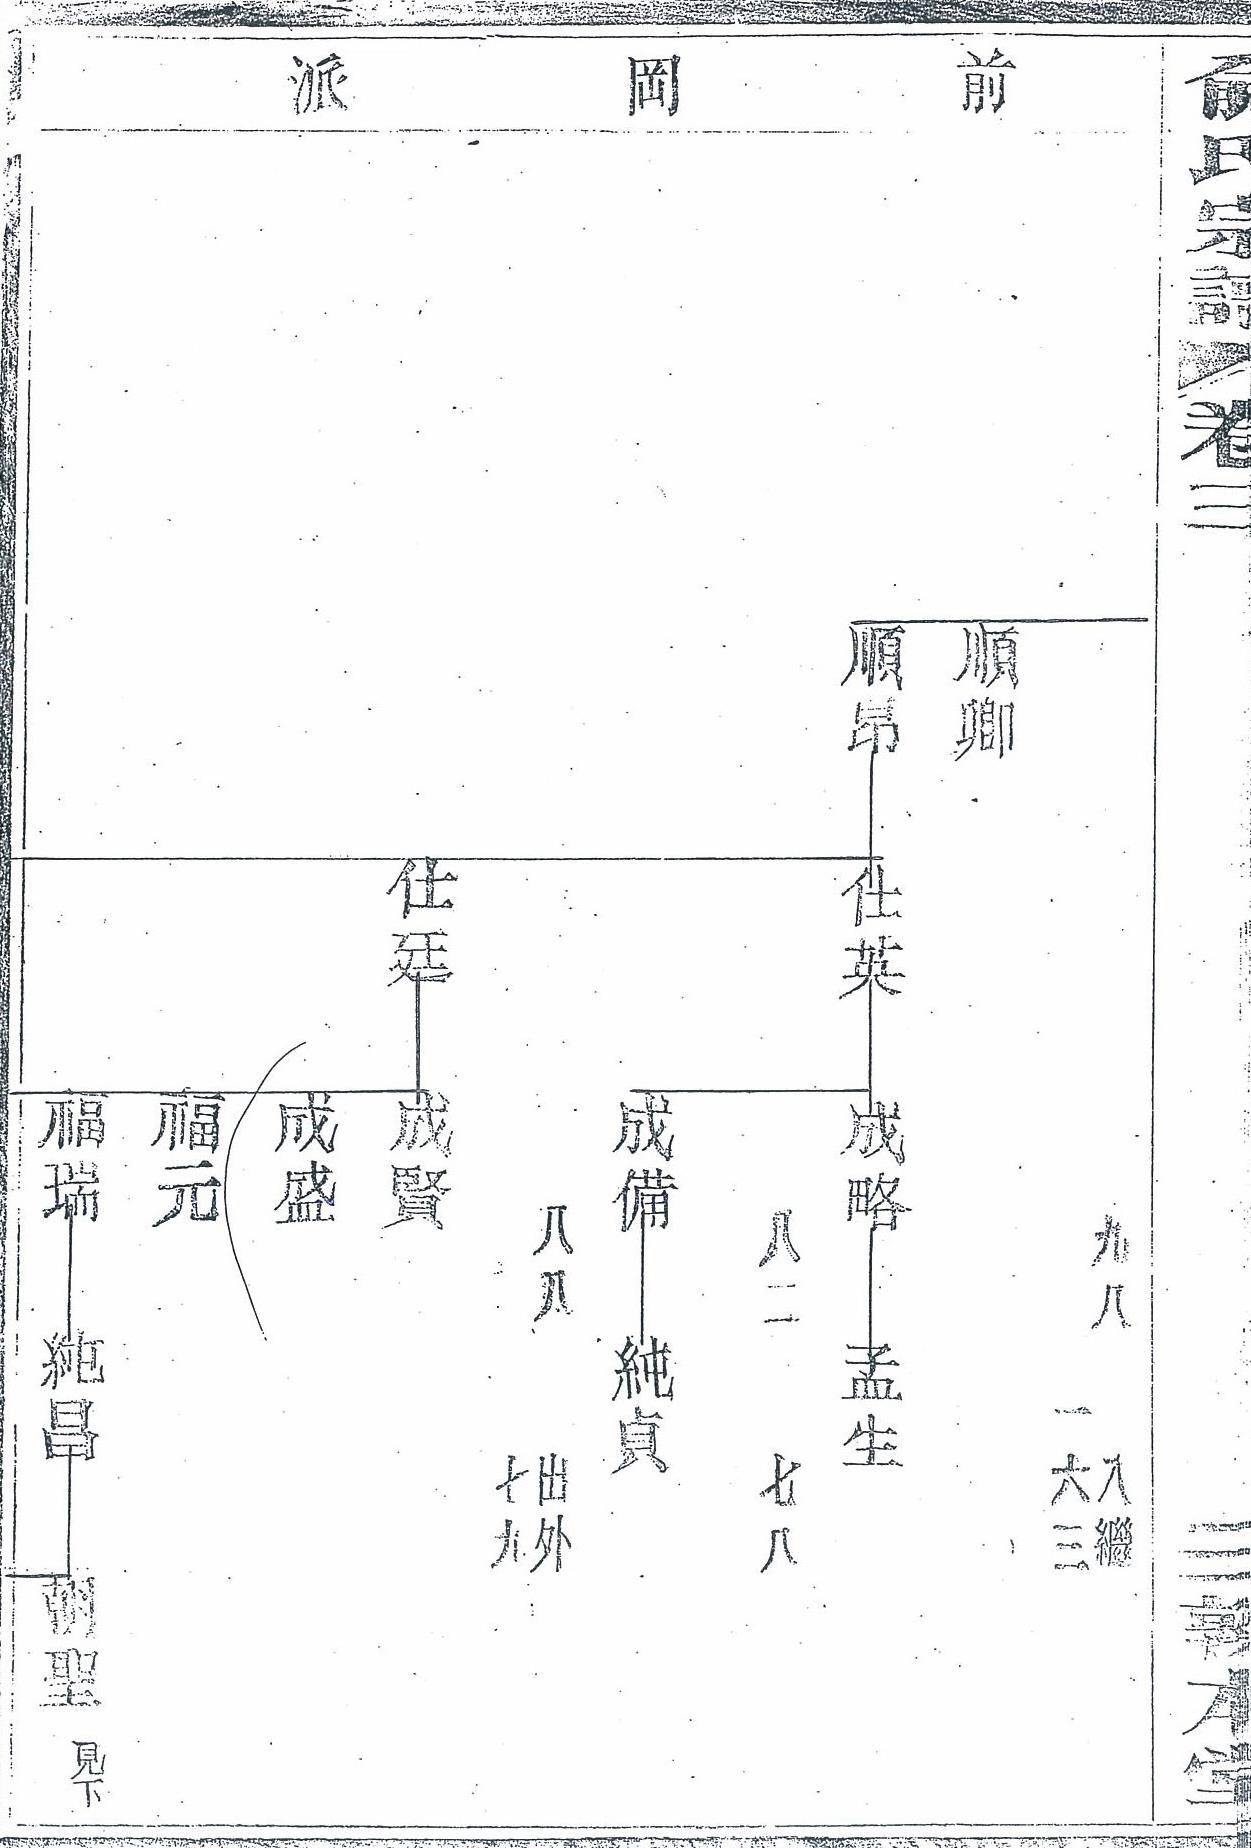 俞氏宗譜 卷三
前岡派
順卿
順昂
仕英
仕廷
成略
成備
成賢
成盛
福元
福瑞
九八
八二
八八
孟生
純貞
純昌
入繼
一六三
七八
出外
七九
朝聖
見下